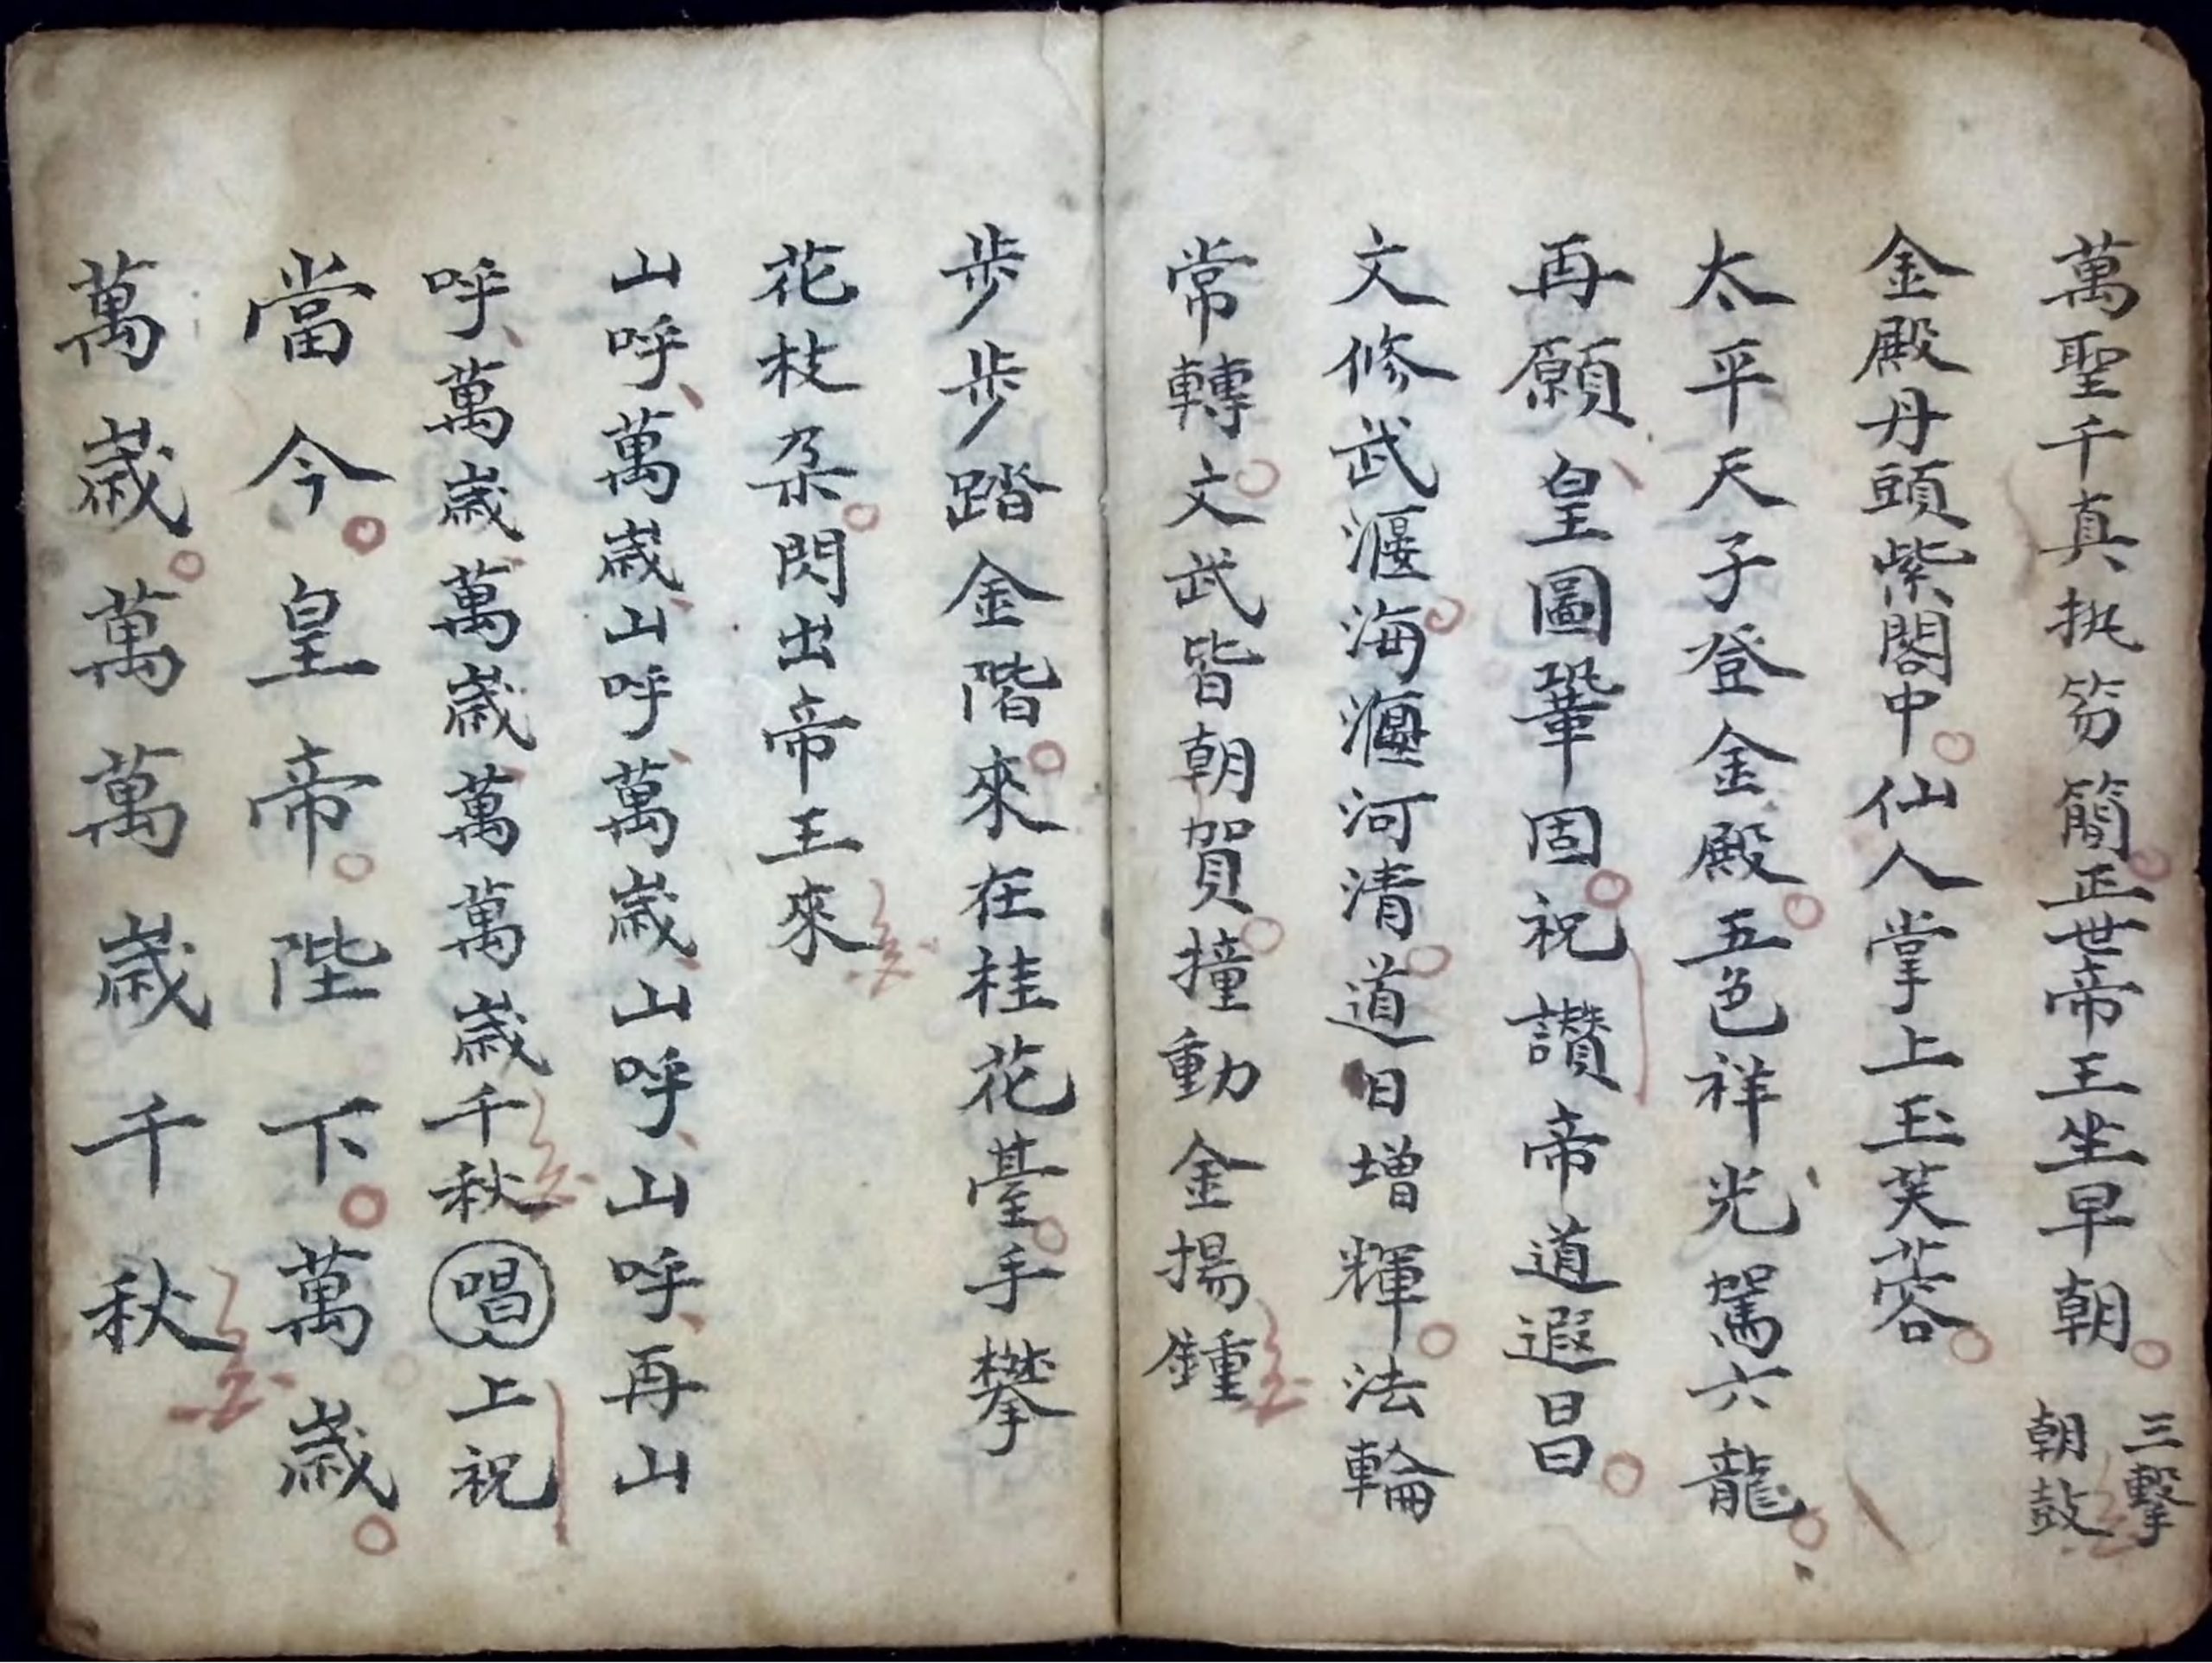 萬聖千真执笏簡正世帝王坐早朝三擊
朝鼓
金殿丹頭紫閣中仙人掌上玉芙蓉
太平天子登金殿五色祥光駕六龍
再願皇圖鞏固祝讚帝道遐昌
文修武偃海漘河清道日增輝法輪
常轉文武皆朝賀撞動金揚鍾
步步踏金階來在桂花臺手攀
花枝朵閃出帝王來
山呼萬歲山呼萬歲山呼山呼再山
呼萬歲萬歲萬萬歲千秋唱上祝
當今皇帝陛下萬歲
萬歲萬萬歲千秋